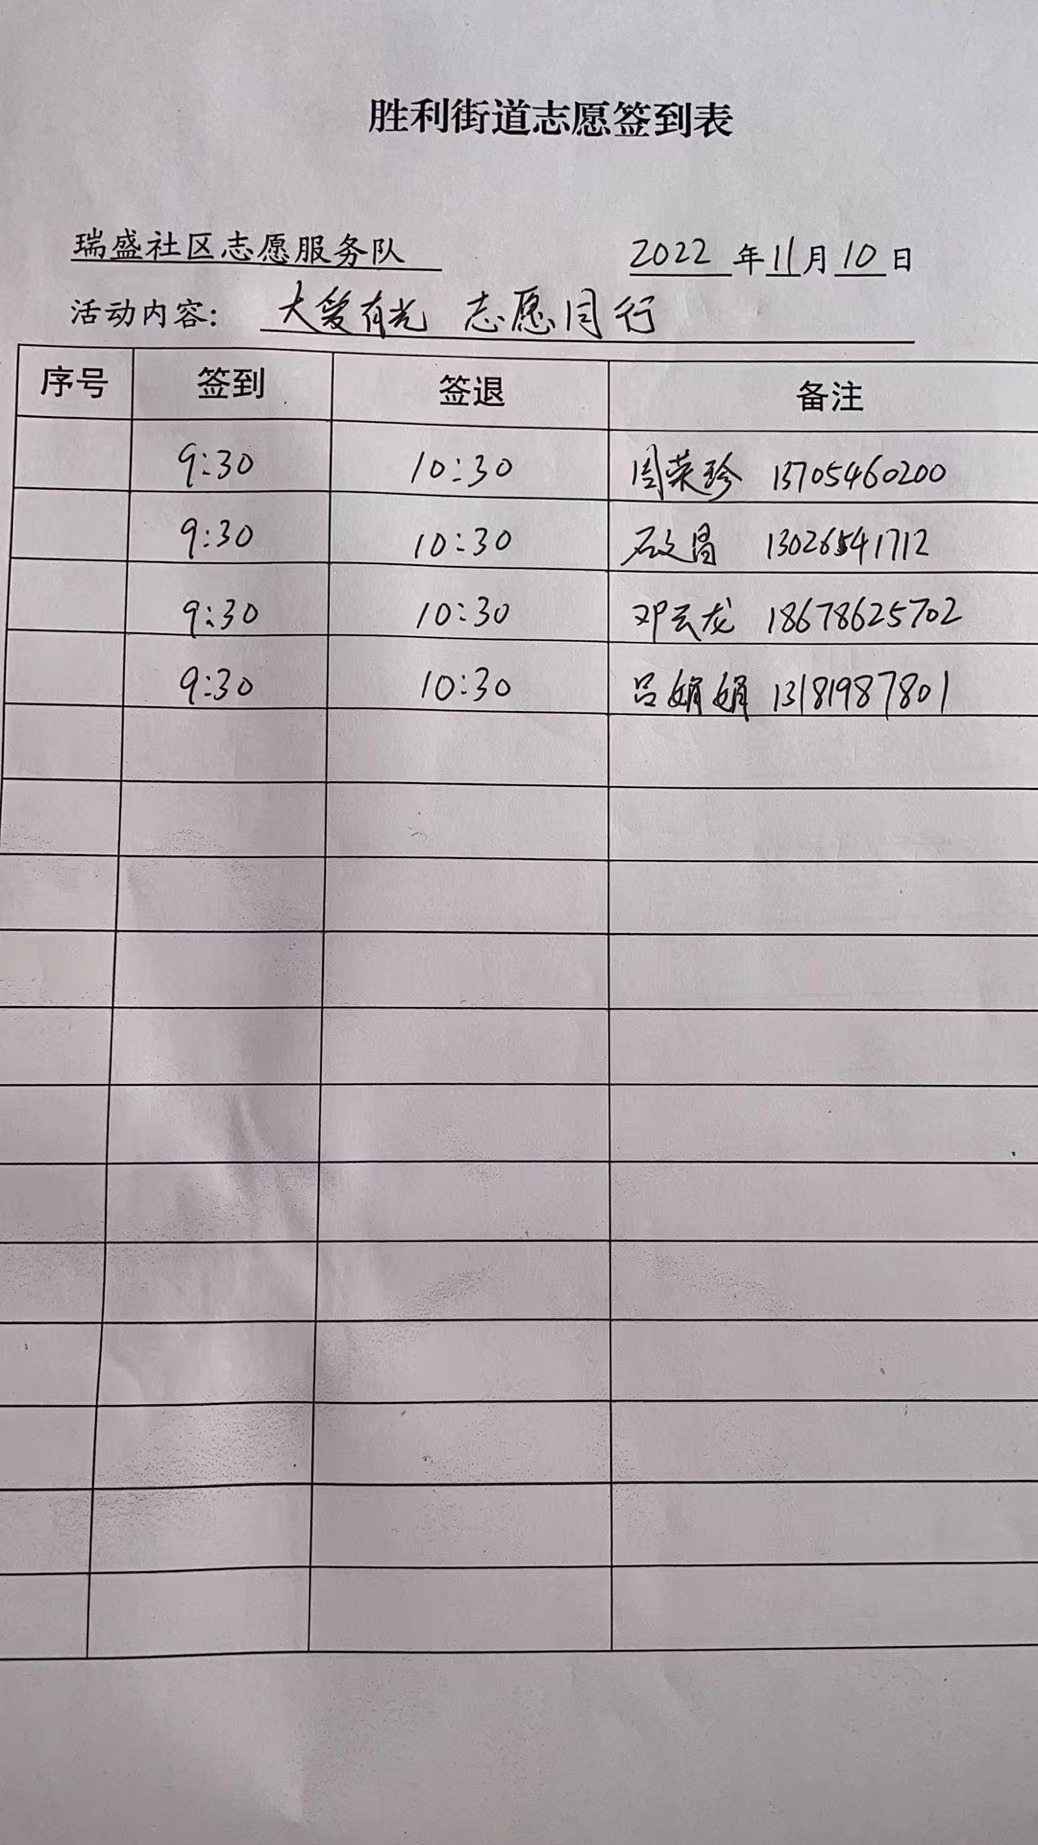 胜利街道志愿签到表
瑞盛社区志愿服务队 2022年11月10日
活动内容： 大爱有光 志愿同行
序号 签到 签退 备注
9:30 10:30 周荣珍 13705460200
9:30 10:30 13026541712
9:30 10:30 邓云龙 18678625702
9:30 10:30 吕娟娟 13181987801